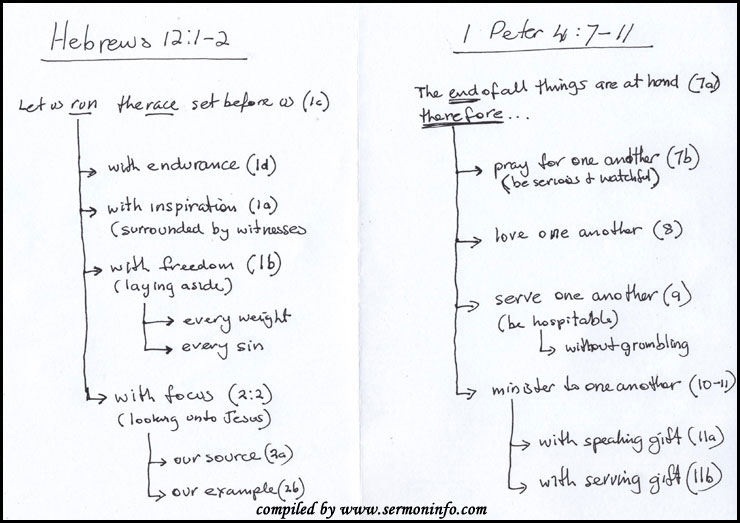 Hebrews 12:1-2
Let us run the race set before us (1c)
with endurance (1d)
with inspiration (1a)
(surrounded by witnesses
with freedom (1b)
(laying aside)
every weight
every sin
with focus (2:2)
(looking unto Jesus)
our source (2a)
our example (2b)
1 Peter 4:7-11
The end of all things are at hand (7a)
therefore...
pray for one another (7b)
(be serious & watchful)
love one another (8)
serve one another (9)
(be hospitable)
without grombling
minister to one another (10-11)
with speaking gift (11a)
with serving gift (11b)
compiled by www.sermoninfo.com